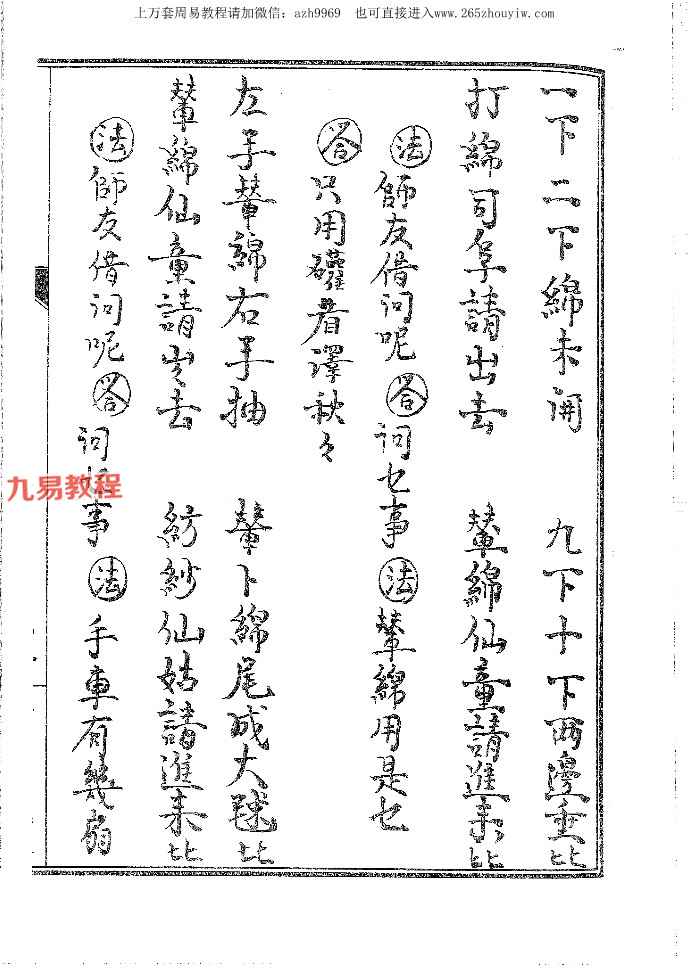 上万套周易教程请加微信：azh9969　也可直接进入www.265zhouyiw.com
一下二下綿未開　九下十下兩邊垂比
打綿司阜請出去　輦綿仙童請進来比
法師友借问呢答问乜事法輦綿用是乜
答只用着譯秧々
左手輦綿右手抽　輦卜綿尾成大毬比
輦綿仙童請出去　紡紗仙姑請進来比
法師友借问呢答问事法手車有幾扇
九易教程